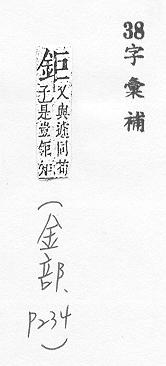 38字彙補
鉅
又與遽同荀
子是豈鉅知
(金部、P234)